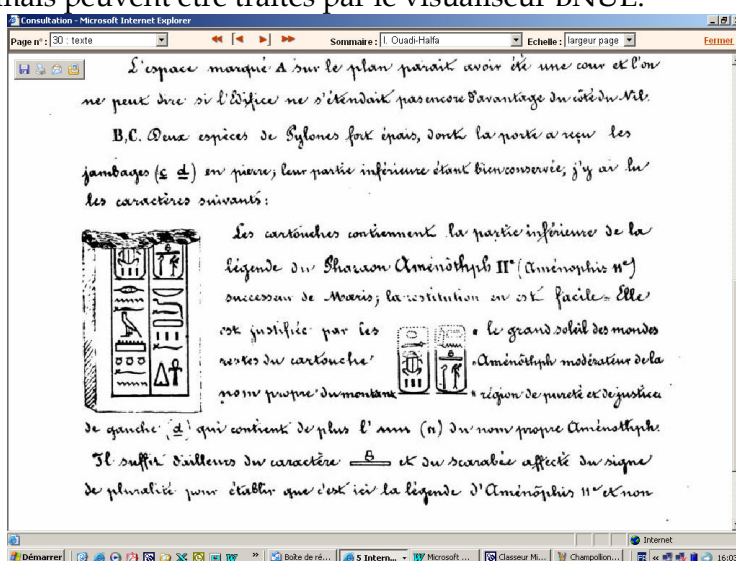 mais peuvent être traités par le visualiseur BNUE.
Consultation - Microsoft Internet Explorer
Page n° : 30 : texte Sommaire : I. Ouadi-Halfa Echelle : largeur page Fermer
L'espace marqué A sur le plan parait avoir été une cour et l'on
ne peut dire si l'Édifice ne s'étendait pas encore davantage du côté du Nil.
B, C. Deux espèces de Pylones fort épais, dont la porte a reçu les
jambages (c d) en pierre; leur partie inférieure étant bien conservée, j'y ai lu
les caractères suivants :
Les cartouches contiennent la partie inférieure de la
légende du Pharaon Aménôthph II (Aménophis II)
successeur de Mœris; la restitution en est facile. Elle
est justifiée par les « le grand soleil des mondes
restes du cartouche Aménôthph modérateur de la
nom propre du montant région de pureté et de justice
de gauche (d) qui contient de plus l' (n) du nom propre Aménôthph.
Il suffit d'ailleurs du caractère et du scarabée affecté du signe
de pluralité pour établir que c'est ici la légende d'Aménôphis II et non
Internet
Démarrer Boîte de ré... 5 Intern... Microsoft ... Classeur Mi... Champollion... 16:03